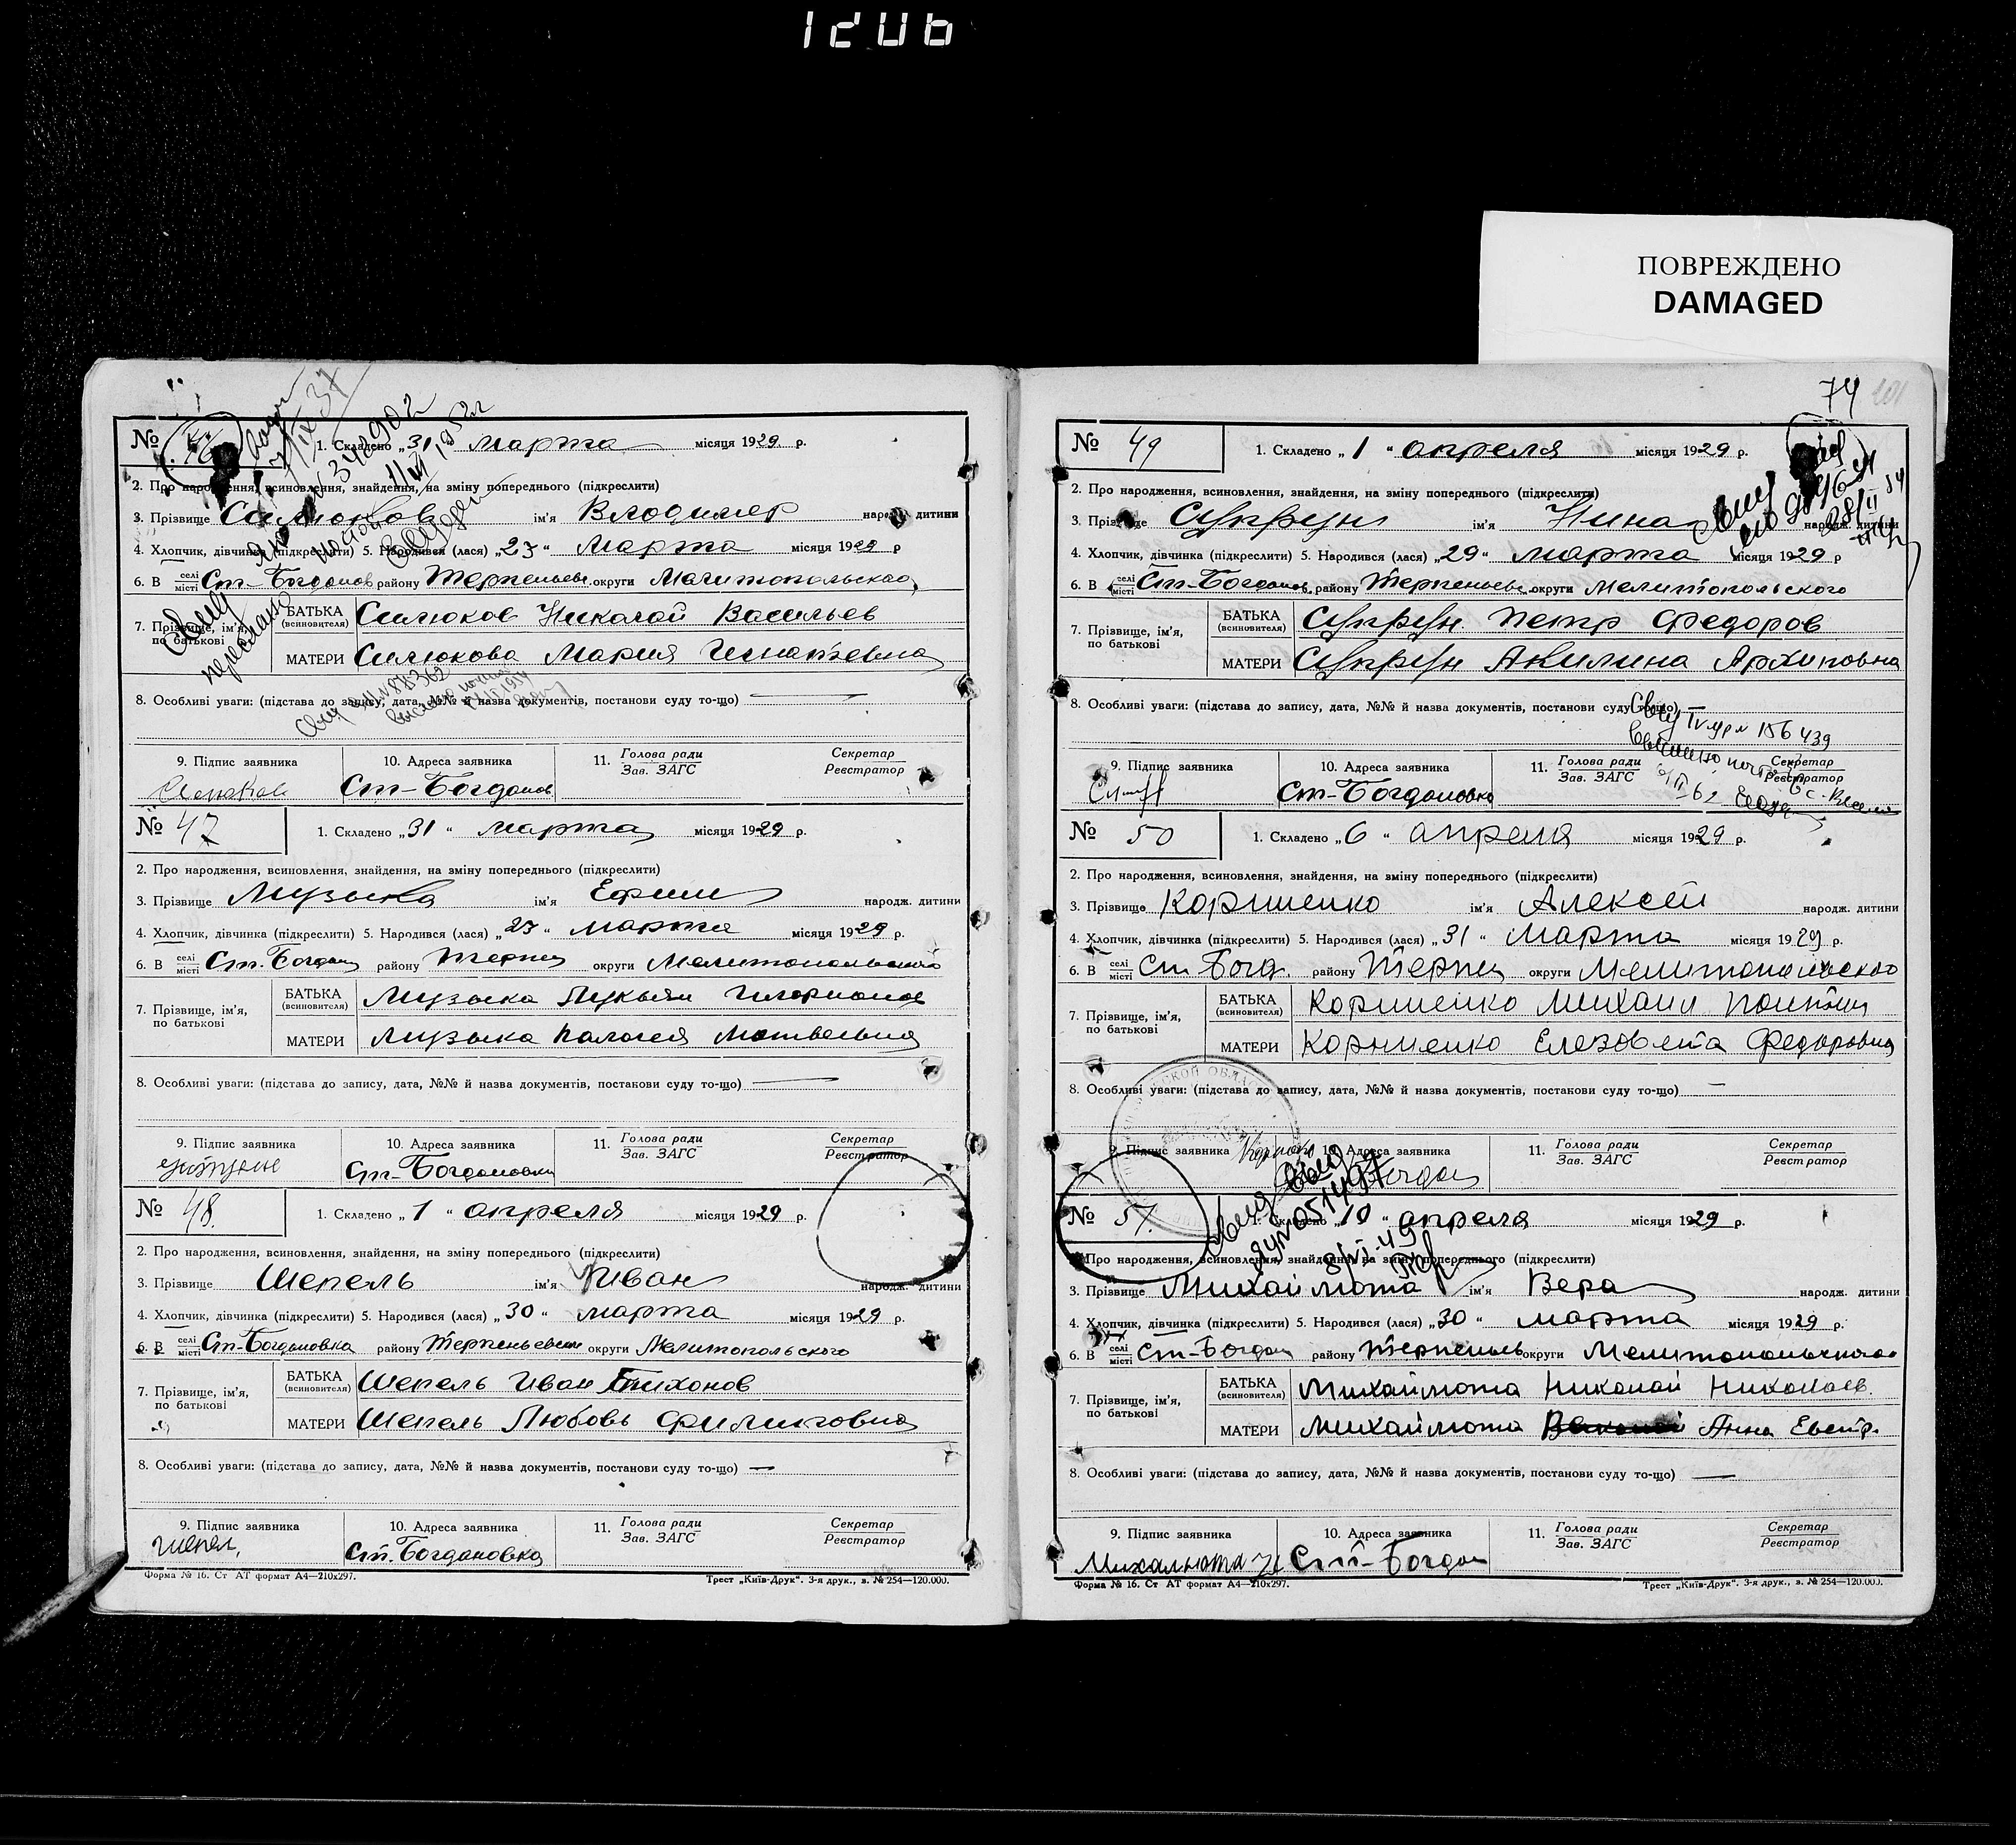 1206
ПОВРЕЖДЕНО
DAMAGED
№ 46 1. Складено „31 марта місяця 1929. р.
2. Про народження, всиновлення, знайдення, на зміну попереднього (підкреслити)
3. Прізвище Силюков ім'я Владимер народж. дитини
4. Хлопчик, дівчинка (підкреслити) 5. Народився (лася) „23“ Марта місяця 1929 р
6. В селі місті Ст-Богданов району Терпеньев. округи Мелитопольскао
7. Прізвище, ім'я, по батькові БАТЬКА (всиновителя) Силюков Николай Васильев
МАТЕРИ Силюкова Мария Игнатьевна
8. Особливі уваги: (підстава до запису, дата, №№ й назва документів, постанови суду то-що)
9. Підпис заявника 10. Адреса заявника 11. Голова ради Зав. ЗАГС Секретар Реєстратор
Ст-Богданов
№ 47 1. Складено „31“ марта місяця 1929 р.
2. Про народження, всиновлення, знайдення, на зміну попереднього (підкреслити)
3. Прізвище Музыка ім'я Ефим народж. дитини
4. Хлопчик, дівчинка (підкреслити) 5. Народився (лася) „23“ марта місяця 1929 р.
6. В селі місті Ст. Богдан району Терпен округи Мелитопольской
7. Прізвище, ім'я, по батькові БАТЬКА (всиновителя) Музыка Лукьян Иларионов
МАТЕРИ Музыка Палагея Матвеевна
8. Особливі уваги: (підстава до запису, дата, №№ й назва документів, постакови суду то-що)
9. Підпис заявника 10. Адреса заявника 11. Голова ради Зав. ЗАГС Секретар Реєстратор
Ст-Богдановка
№ 48. 1. Складено „1“ апреля місяця 1929 р.
2. Про народження, всиновлення, знайдення, на зміну попереднього (підкреслити)
3. Прізвище Шепель ім'я Иван народж. дитини
4. Хлопчик, дівчинка (підкреслити) 5. Народився (лася) „30“ марта місяця 1929 р.
6. В селі місті Ст-Богдановка району Терпеньевск округи Мелитопольского
7. Прізвище, ім'я, по батькові БАТЬКА (всиновителя) Шепель Иван Тихонов
МАТЕРИ Шепель Любовь Филиповна
8. Особливі уваги: (підстава до запису, дата, №№ й назва документів, постанови суду то-що) —
9. Підпис заявника 10. Адреса заявника 11. Голова ради Зав. ЗАГС Секретар Реєстратор
Шепел, Ст. Богдановка
Форма № 16. Ст АТ формат А4—210х297. Трест „Київ-Друк“. 3-я друк., з. № 254—120.000.
74 101
№ 49 1. Складено „1“ апреля місяця 1929 р.
2. Про народження, всиновлення, знайдення, на зміну попереднього (підкреслити)
3. Прізвище Супрун ім'я Нина народж. дитини
4. Хлопчик, дівчинка (підкреслити) 5. Народився (лася) „29“ марта місяця 1929 р
6. В селі місті Ст-Богданов. району Терпеньев. округи Мелитопольского
7. Прізвище, ім'я, по батькові БАТЬКА (всиновителя) Супрун Петр Федоров
МАТЕРИ Супрун Акилина Архиповна
8. Особливі уваги: (підстава до запису, дата, №№ й назва документів, постанови суду то-що) —
156439
9. Підпис заявника 10. Адреса заявника 11. Голова ради Зав. ЗАГС Секретар Реєстратор
Ст-Богдановка
№ 50 1. Складено „6“ апреля місяця 1929 р.
2. Про народження, всиновлення, знайдення, на зміну попереднього (підкреслити)
3. Прізвище Корниенко ім'я Алексей народж. дитини
4. Хлопчик, дівчинка (підкреслити) 5. Народився (лася) „31“ Марта місяця 1929 р.
6. В селі місті Ст. Богд. району Терпен округи Мелитопольскао
7. Прізвище, ім'я, по батькові БАТЬКА (всиновителя) Корниенко Михаил
МАТЕРИ Корниенко Елезовета Федоровна
8. Особливі уваги: (підстава до запису, дата, №№ й назва документів, постакови суду то-що) —
9. Підпис заявника 10. Адреса заявника 11. Голова ради Зав. ЗАГС Секретар Реєстратор
№ 51. 1. Складено „10“ апреля місяця 1929 р.
2. Про народження, всиновлення, знайдення, на зміну попереднього (підкреслити)
3. Прізвище Михайлюта ім'я Вера народж. дитини
4. Хлопчик, дівчинка (підкреслити) 5. Народився (лася) „30“ марта місяця 1929 р.
6. В селі місті Ст-Богдан району Терпеньев округи
7. Прізвище, ім'я, по батькові БАТЬКА (всиновителя) Михайлюта Николай Николаев.
МАТЕРИ Михайлюта Анна Евстр.
8. Особливі уваги: (підстава до запису, дата, №№ й назва документів, постанови суду то-що) —
9. Підпис заявника 10. Адреса заявника 11. Голова ради Зав. ЗАГС Секретар Реєстратор
Михальюта Ст-Богдан
Форма № 16. Ст АТ формат А4—210х297. Трест „Київ-Друк“. 3-я друк., з. № 254—120.000.